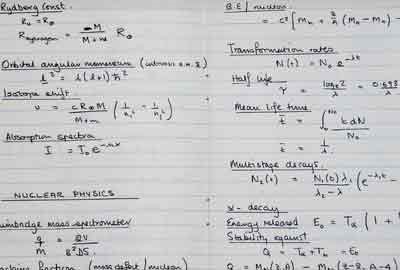 Rydberg Const.
R₀ = R∞
R_Hydrogen = M / (M + m) R∞
Orbital angular momentum (intrinsic a.m. s)
l² = l(l+1) ħ²
Isotope shift.
ν = cR∞M / (M+m) (1/n₁² - 1/n₂²)
Absorption spectra
I = I₀ e^-nαx
NUCLEAR PHYSICS
mass spectrometer
q/m = 2V / B²DS
fraction (mass defect / nucleon)
B.E / nucleon
= c² [Mn + Z/A (MH - Mn) -
Transformation rates.
N(t) = N₀ e^-λt
Half life
τ = log_e 2 / λ = 0.693 / λ
Mean life time
t̄ = ∫₀^N₀ t dN / N₀
t̄ = 1/λ
Multistage decays.
N₂(t) = N₁(0) λ₁ / (λ₂ - λ₁) (e^-λ₁t -
α- decay
Energy released E₀ = Tα (1 +
Stability against
Q = Tα + Tb = E₀
Q = (Z, A) - (Z-2, A-4)